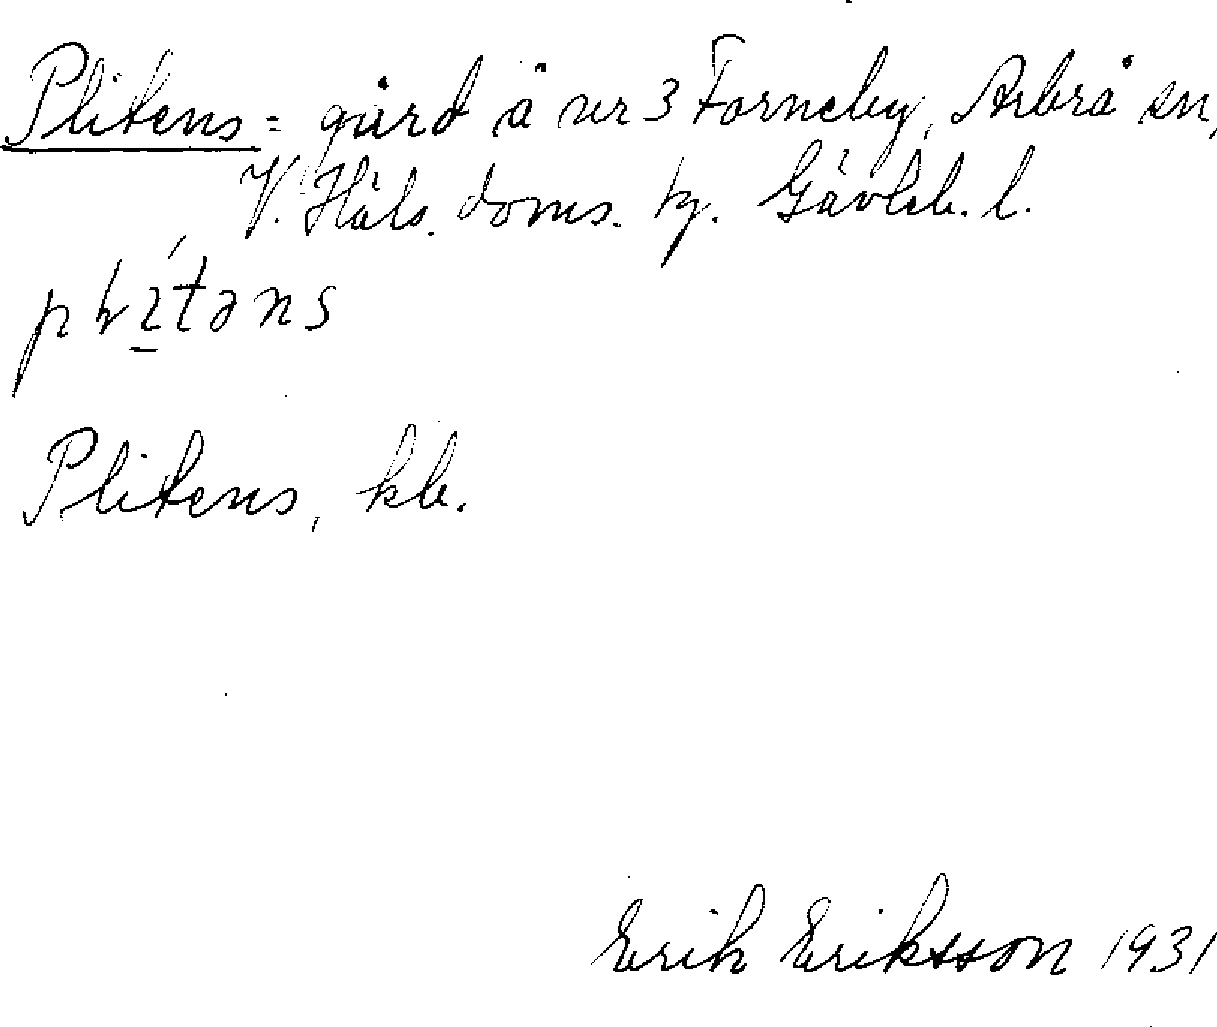 Plitens = gård å nr 3 Forneby, Arbrå sn,
V. Häls. doms. hg. Gävleb. l.
Plitens, kb.
Erik Eriksson 1931